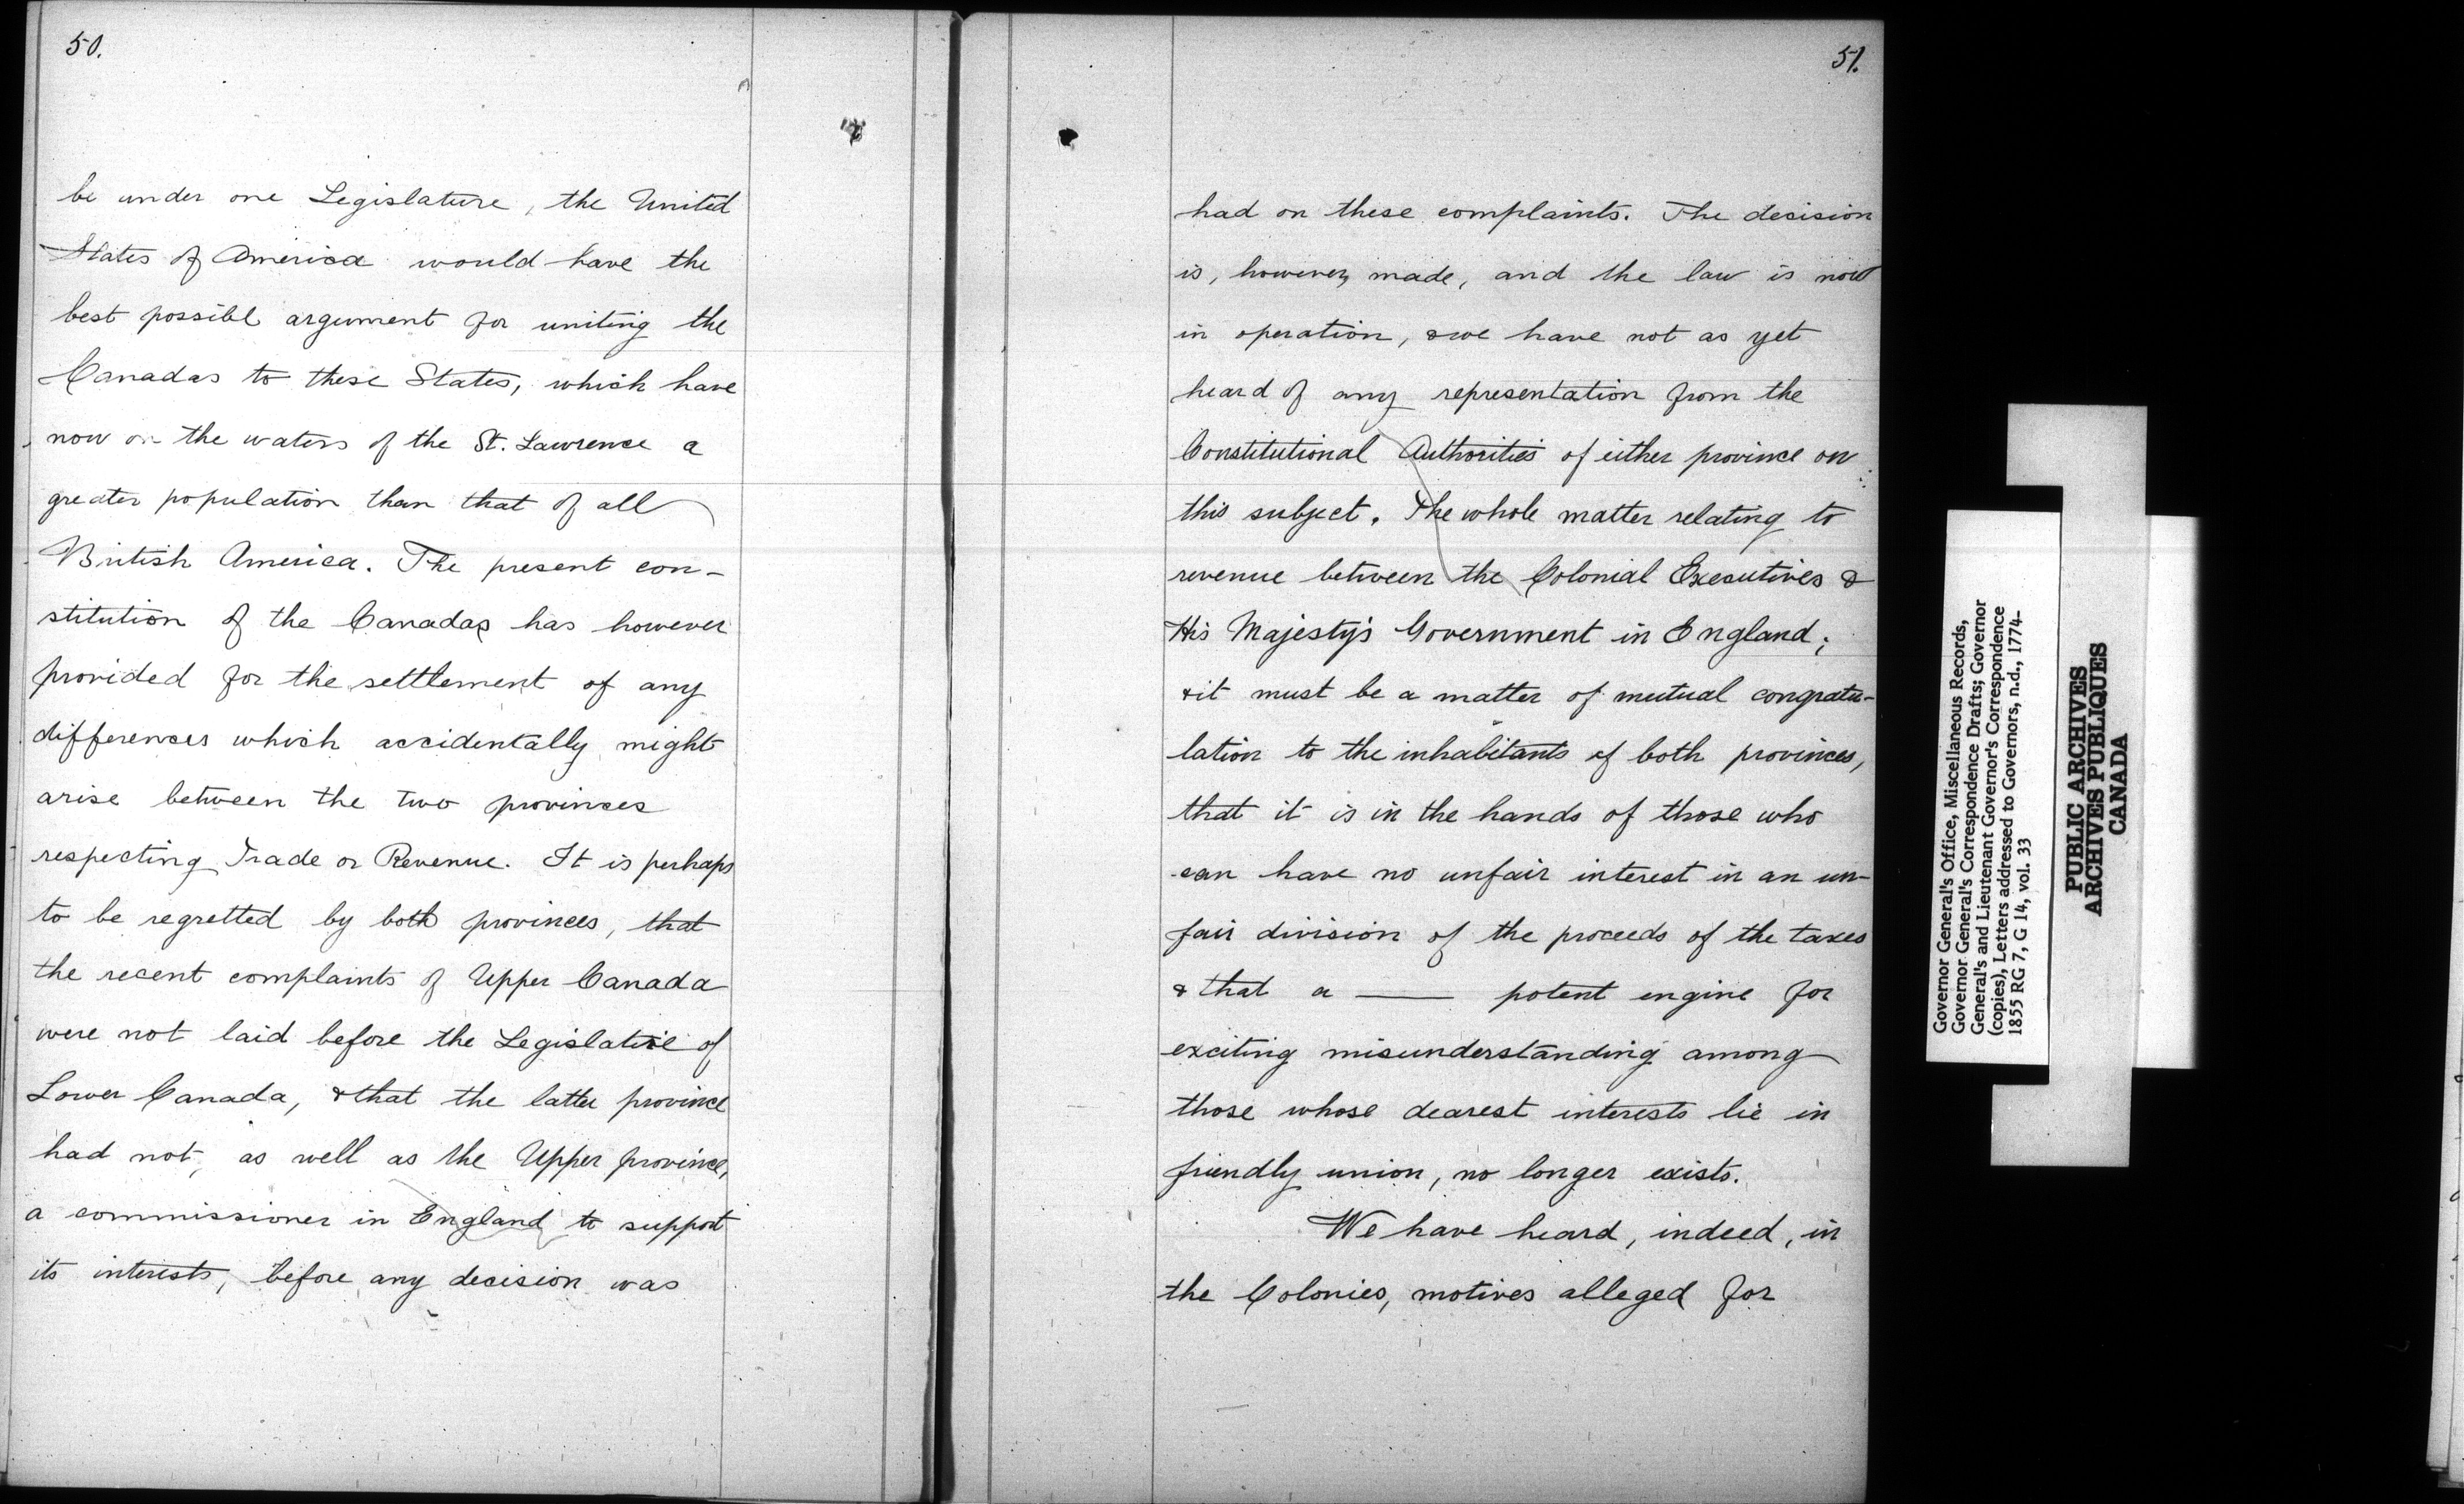 50.
be under one Legislature, the United
States of America would have the
best possible argument for uniting the
Canadas to these States, which have
now on the waters of the St. Lawrence a
greater population than that of all
British America. The present con-
stitution of the Canadas has however
provided for the settlement of any
differences which accidentally might
arise between the two provinces
respecting Trade or Revenue. It is perhaps
to be regretted by both provinces, that
the recent complaints of Upper Canada
were not laid before the Legislature of
Lower Canada, & that the latter province
had not, as well as the Upper province,
a commissioner in England to support
its interests, before any decision was
51.
had on these complaints. The decision
is, however, made, and the law is now
in operation, & we have not as yet
heard of any representation from the
Constitutional Authorities of either province on
this subject. The whole matter relating to
revenue between the Colonial Executives &
His Majesty's Government in England;
& it must be a matter of mutual congratu-
lation to the inhabitants of both provinces,
that it is in the hands of those who
can have no unfair interest in an un-
fair division of the proceeds of the taxes
& that a —— potent engine for
exciting misunderstanding among
those whose dearest interests lie in
friendly union, no longer exists.
We have heard, indeed, in
the Colonies, motives alleged for
Governor General's Office, Miscellaneous Records,
Governor General's Correspondence Drafts; Governor
General's and Lieutenant Governor's Correspondence
(copies), Letters addressed to Governors, n.d., 1774-
1855 RG 7, G 14, vol. 33
PUBLIC ARCHIVES
ARCHIVES PUBLIQUES
CANADA